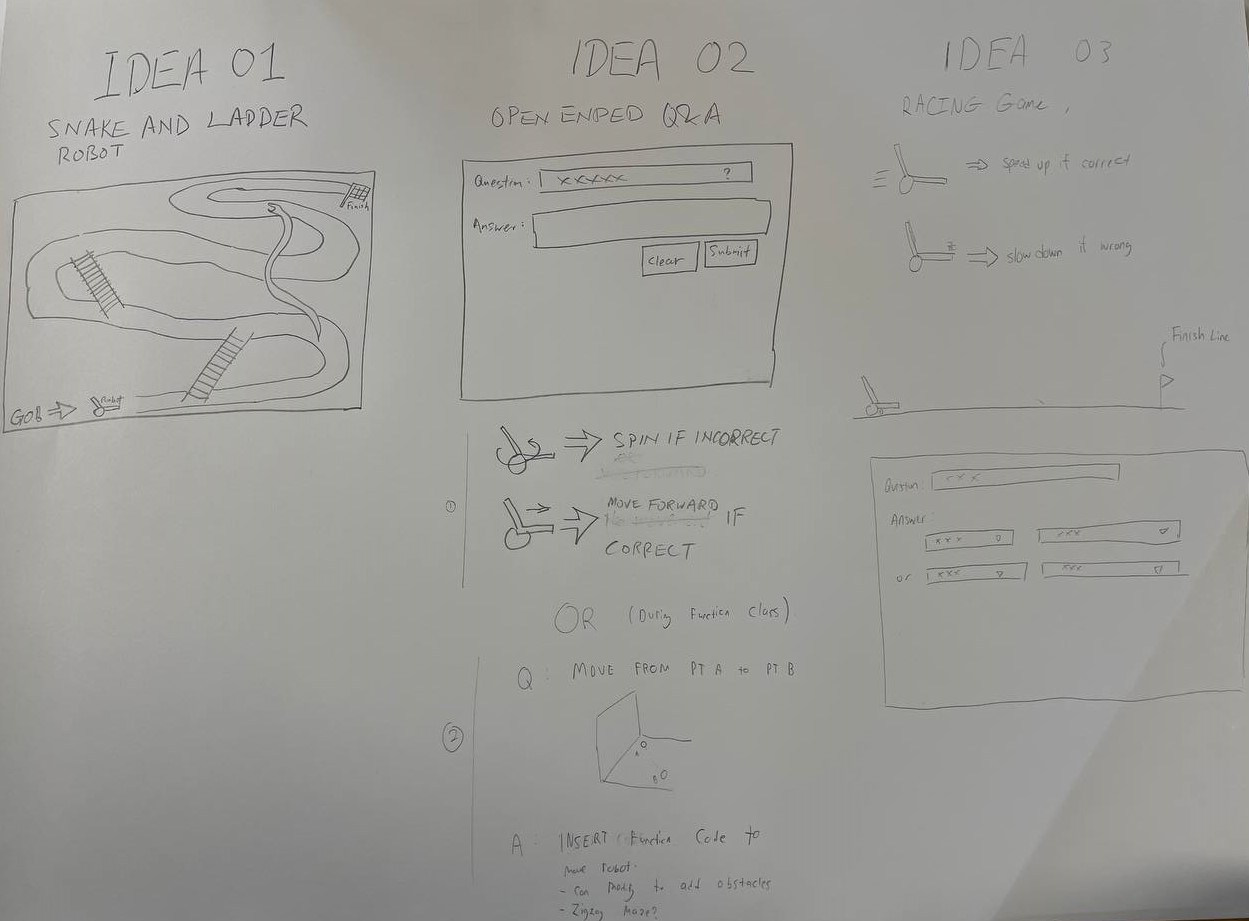 IDEA 01
SNAKE AND LADDER
ROBOT
Finish
GO!!
Robot
IDEA 02
OPEN ENDED Q&A
Question: xxxxx ?
Answer:
Clear
Submit
①
SPIN IF INCORRECT
MOVE FORWARD
IF
CORRECT
OR (During Function Class)
②
Q: MOVE FROM PT A to PT B
A
B
A: INSERT Function Code to
move robot.
- Can modify to add obstacles
- Zigzag Maze?
IDEA 03
RACING Game,
speed up if correct
z
slow down if wrong
Finish Line
Question xxx
Answer
xxx xxx
or xxx xxx